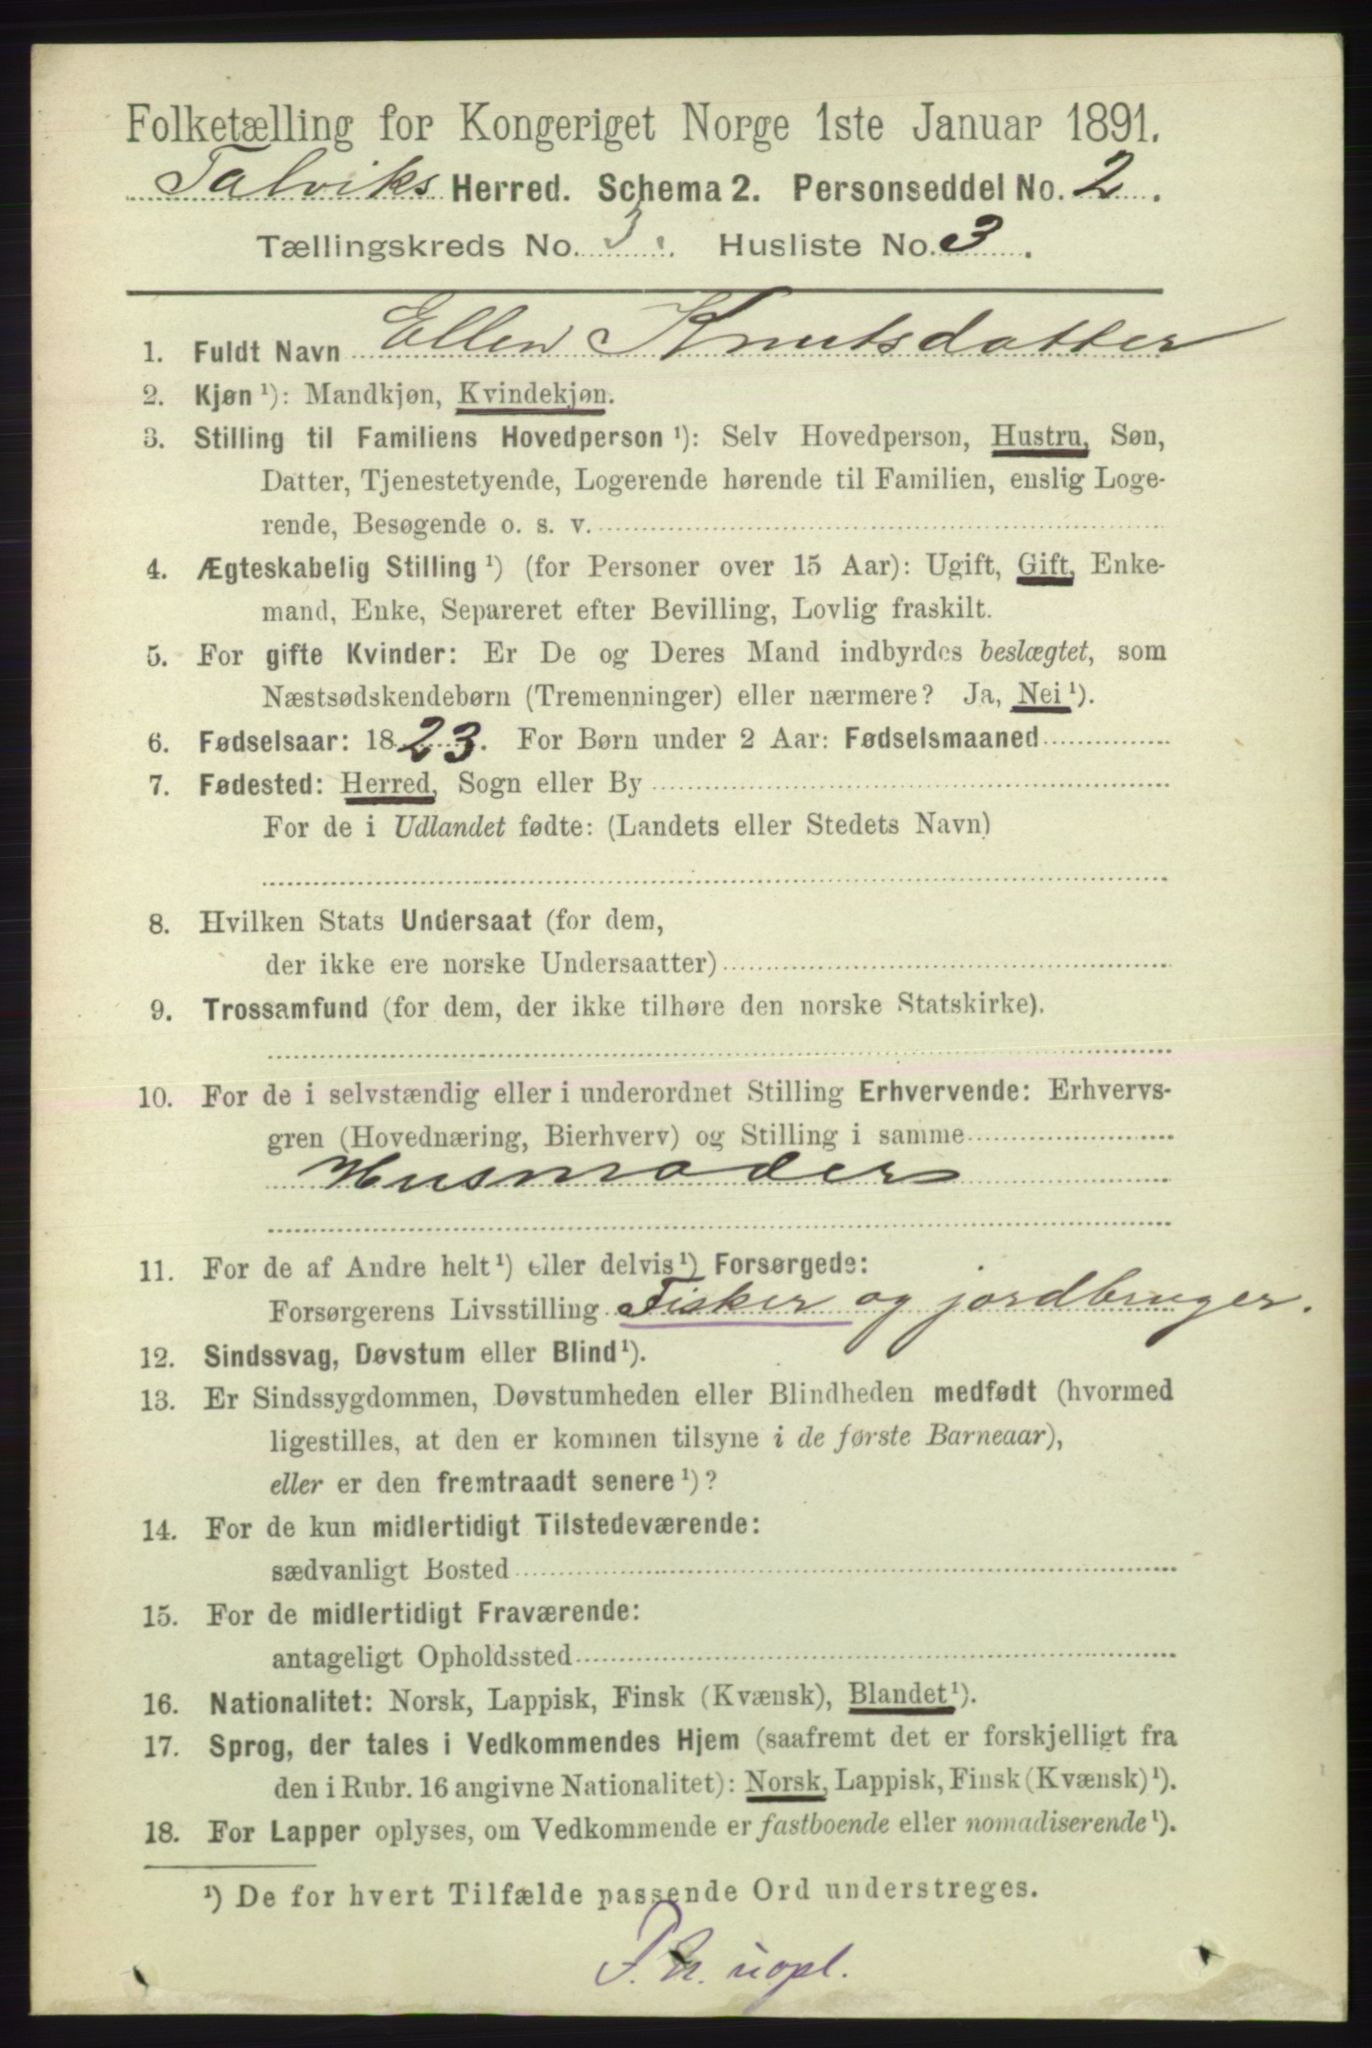 Folketælling for Kongeriget Norge 1ste Januar 1891.
Talviks Herred. Schema 2. Personseddel No. 2.
Tællingskreds No. 3. Husliste No. 3.
1. Fuldt Navn Ellen Knutsdatter
2. Kjøn ¹): Mandkjøn, Kvindekjøn.
3. Stilling til Familiens Hovedperson ¹): Selv Hovedperson, Hustru, Søn,
Datter, Tjenestetyende, Logerende hørende til Familien, enslig Loge-
rende, Besøgende o. s. v.
4. Ægteskabelig Stilling ¹) (for Personer over 15 Aar): Ugift, Gift, Enke-
mand, Enke, Separeret efter Bevilling, Lovlig fraskilt.
5. For gifte Kvinder: Er De og Deres Mand indbyrdes beslægtet, som
Næstsødskendebørn (Tremenninger) eller nærmere? Ja, Nei ¹).
6. Fødselsaar: 1823. For Børn under 2 Aar: Fødselsmaaned
7. Fødested: Herred, Sogn eller By
For de i Udlandet fødte: (Landets eller Stedets Navn)
8. Hvilken Stats Undersaat (for dem,
der ikke ere norske Undersaatter)
9. Trossamfund (for dem, der ikke tilhøre den norske Statskirke).
10. For de i selvstændig eller i underordnet Stilling Erhvervende: Erhvervs-
gren (Hovednæring, Bierhverv) og Stilling i samme
Husmoder
11. For de af Andre helt ¹) eller delvis ¹) Forsørgede:
Forsørgerens Livsstilling Fisker og jordbruger.
12. Sindssvag, Døvstum eller Blind ¹).
13. Er Sindssygdommen, Døvstumheden eller Blindheden medfødt (hvormed
ligestilles, at den er kommen tilsyne i de første Barneaar),
eller er den fremtraadt senere ¹)?
14. For de kun midlertidigt Tilstedeværende:
sædvanligt Bosted
15. For de midlertidigt Fraværende:
antageligt Opholdssted
16. Nationalitet: Norsk, Lappisk, Finsk (Kvænsk), Blandet ¹).
17. Sprog, der tales i Vedkommendes Hjem (saafremt det er forskjelligt fra
den i Rubr. 16 angivne Nationalitet): Norsk, Lappisk, Finsk (Kvænsk) ¹).
18. For Lapper oplyses, om Vedkommende er fastboende eller nomadiserende ¹).
¹) De for hvert Tilfælde passende Ord understreges.
uopl.